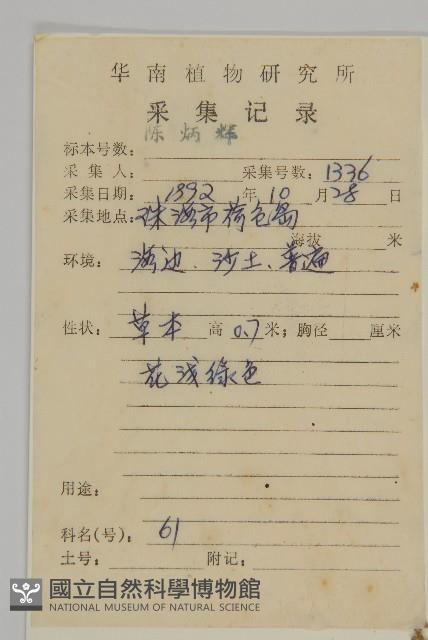 华南植物研究所
采集记录
陈炳辉
标本号数:
采集人: 采集号数: 1336
采集日期: 1992年10月28日
采集地点: 珠海市荷包岛
海拔 米
环境: 海边、沙土、普遍
性状: 草本 高 0.7米; 胸径 厘米
花浅绿色
用途:
科名(号): 61
土号: 附记:
國立自然科學博物館
NATIONAL MUSEUM OF NATURAL SCIENCE